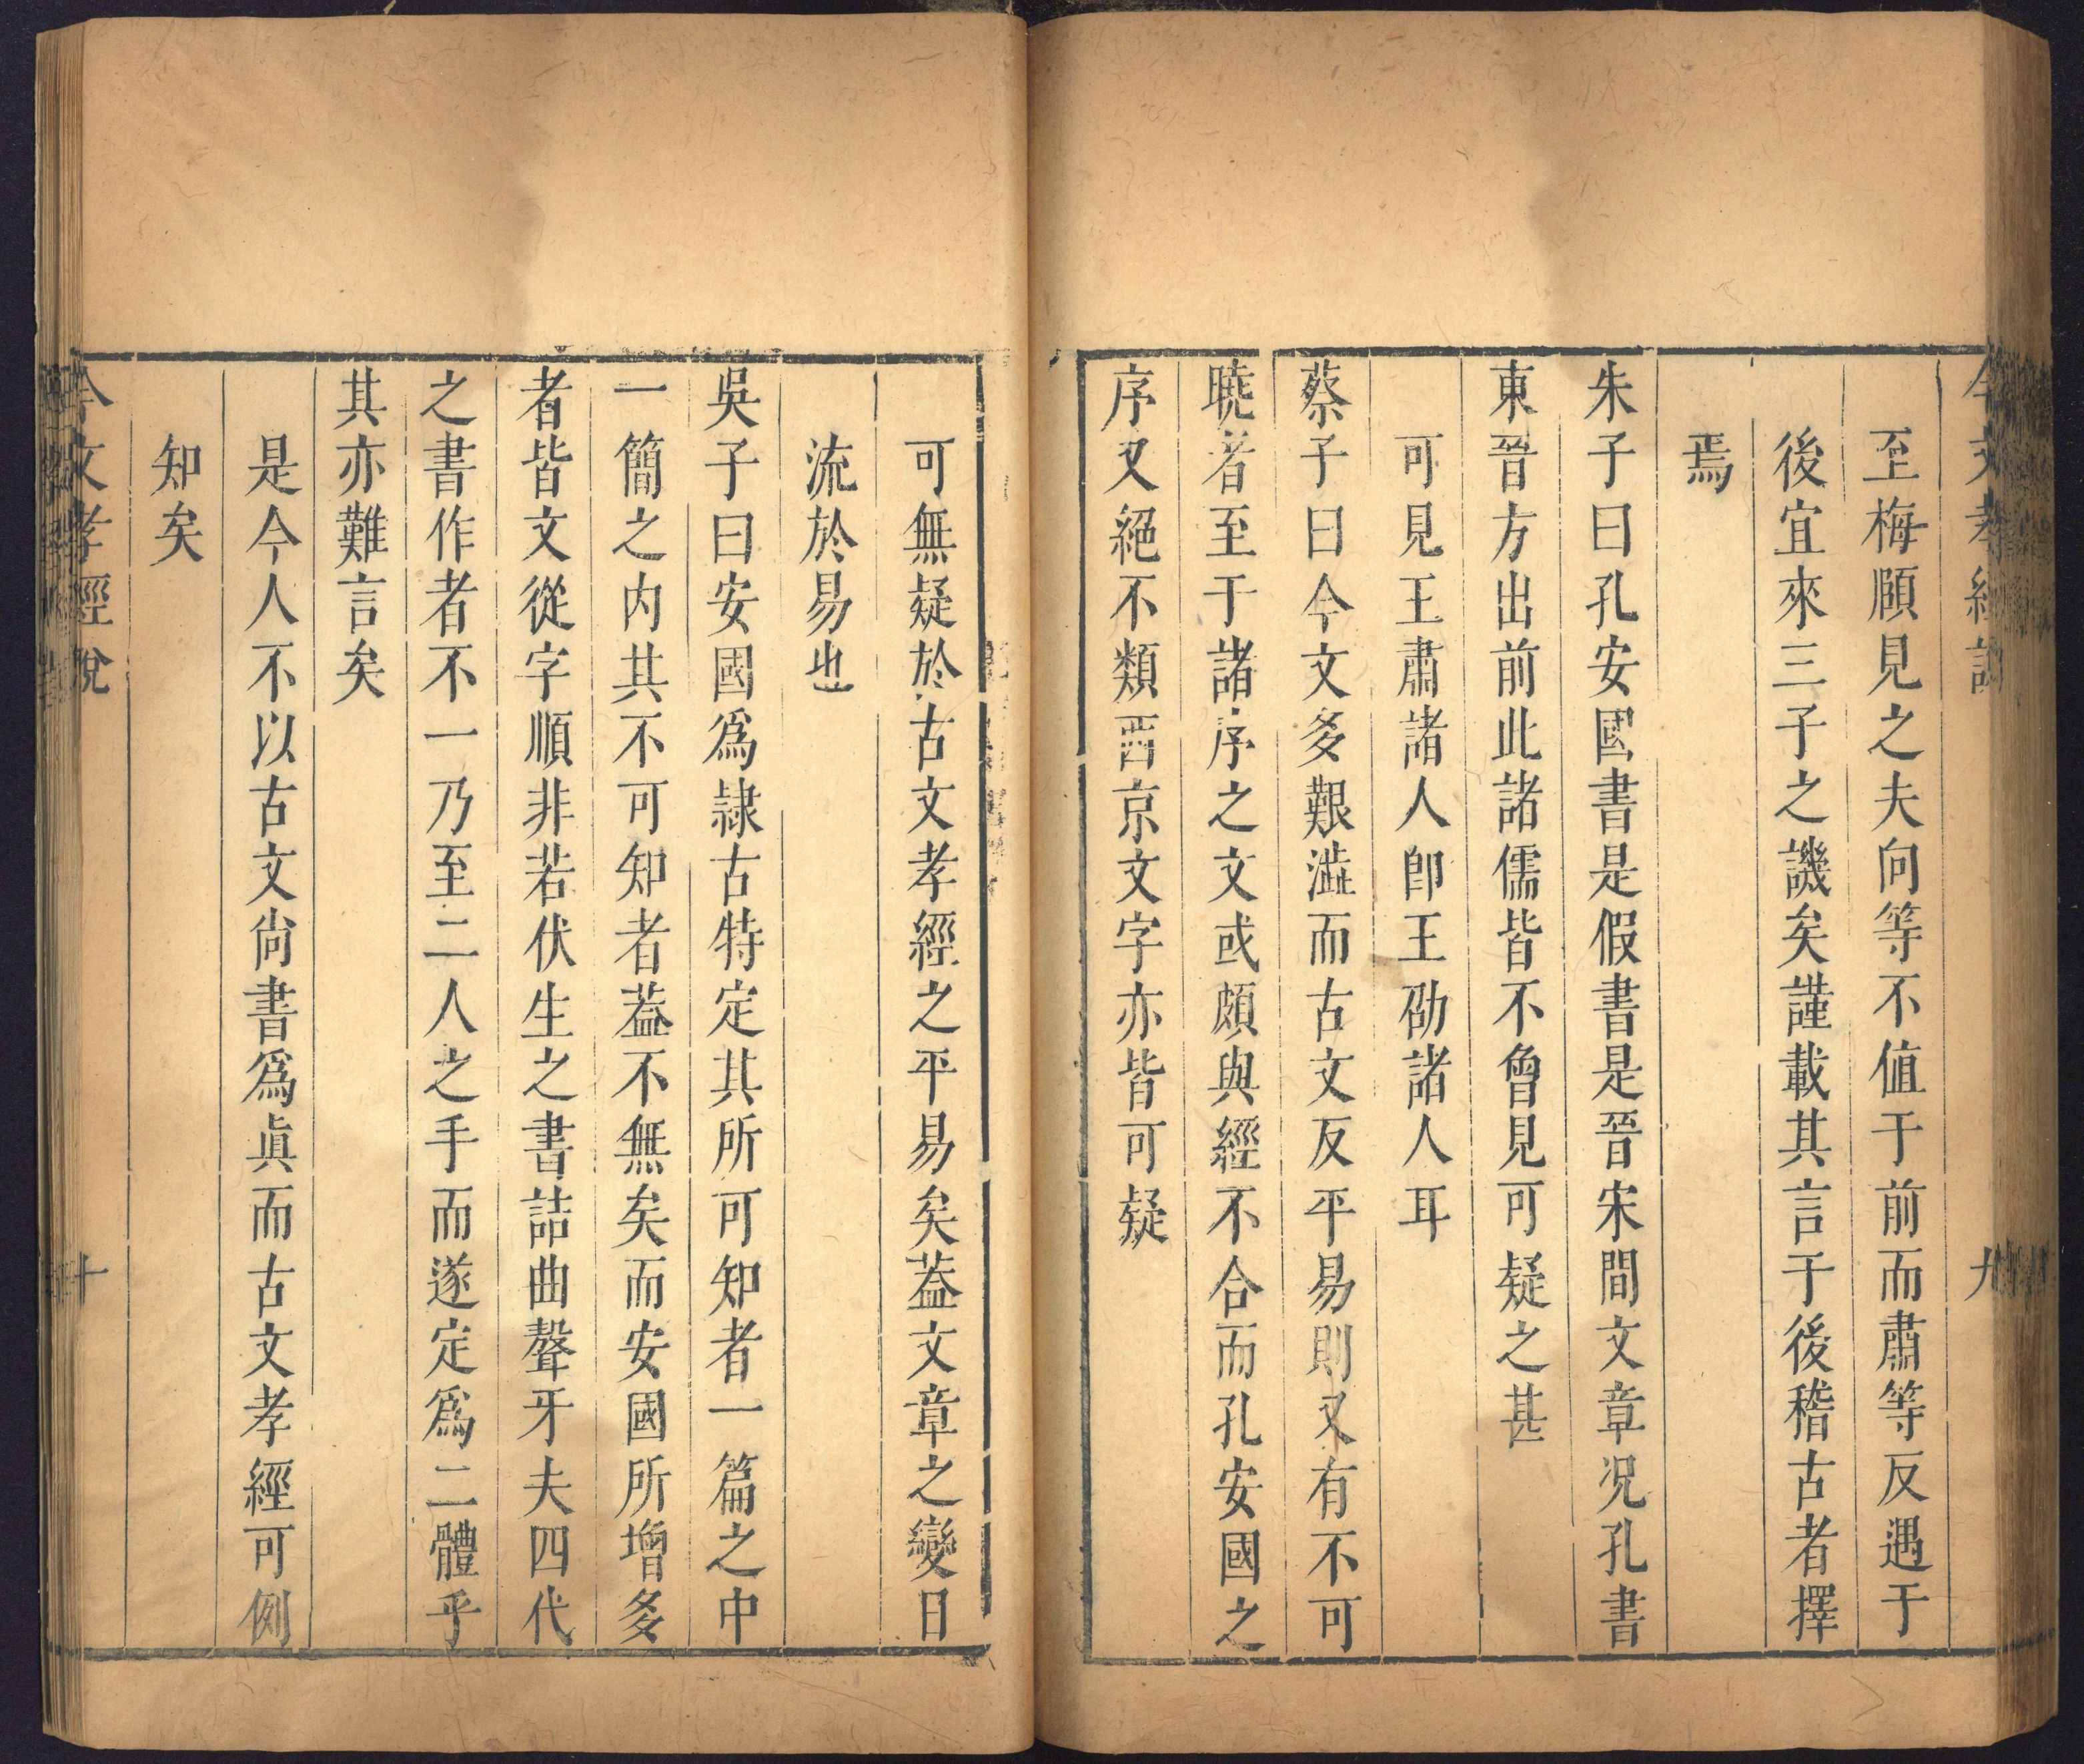 今文孝經說 九
至梅頤見之夫向等不值于前而肅等反遇于
後宜來三子之譏矣謹載其言于後稽古者擇
焉
朱子曰孔安國書是假書是晉宋間文章况孔書
東晉方出前此諸儒皆不曾見可疑之甚
可見王肅諸人卽王劭諸人耳
蔡子曰今文多艱澁而古文反平易則又有不可
曉者至于諸序之文或頗與經不合而孔安國之
序又絕不類西京文字亦皆可疑
可無疑於古文孝經之平易矣葢文章之變日
流於易也
吳子曰安國爲隷古特定其所可知者一篇之中
一簡之内其不可知者葢不無矣而安國所增多
者皆文從字順非若伏生之書詰曲聱牙夫四代
之書作者不一乃至二人之手而遂定爲二體乎
其亦難言矣
是今人不以古文尙書爲眞而古文孝經可例
知矣
今文孝經說 十